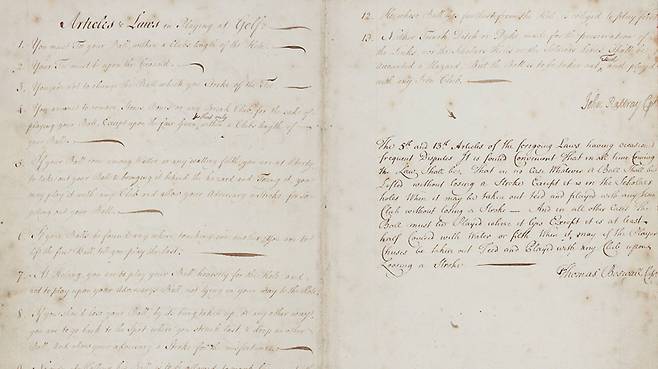 Articles & Laws in Playing at Golf.
1. You must Tee your Ball within a Clubs length of the Hole.
2. Your Tee must be upon the Ground.
3. You are not to change the Ball which you Stroke off the Tee.
4. You are not to remove Stones, Bones or any Break Club, for the sake of
playing your Ball, Except upon the fair Green, & that only within a Clubs length of
your Ball.
5. If your Ball come among Water, or any wattery filth, you are at liberty
to take out your Ball & bringing it behind the hazard and Teeing it, you
may play it with any Club and allow your Adversary a Stroke for so
getting out your Ball.
6. If your Balls be found any where touching one another, You are to
lift the first Ball, till you play the last.
7. At Holing, you are to play your Ball honestly for the Hole, and
not to play upon your Adversary's Ball, not lying in your way to the Hole.
8. If you should lose your Ball, by its being taken up, or any other way,
you are to go back to the Spot, where you struck last, & drop another
Ball, and allow your adversary a Stroke for the misfortune.
12. He whose Ball lyes farthest from the Hole is obliged to play first.
13. Neither Trench, Ditch or Dyke, made for the preservation
of the Links, nor the Scholars Holes or the Soldiers Lines, Shall be
accounted a Hazard. But the Ball is to be taken out Teed and play'd
with any Iron Club.
John Rattray Capt
The 5th and 13th Articles of the foregoing Laws having occasioned
frequent Disputes It is found Convenient That in all time Coming
the Law Shall be, That in no Case Whatever a Ball Shall be
Lifted without losing a Stroke Except it is in the Scholars
holes When it may be taken out teed and played with any Iron
Club without losing a Stroke — And in all other Cases The
Ball must be Played where it lyes Except it is at least
half Covered with Water or filth When it may if the Player
Chuses be taken out Teed and Played with any Club upon
Loosing a Stroke
Thomas Boswall Capt